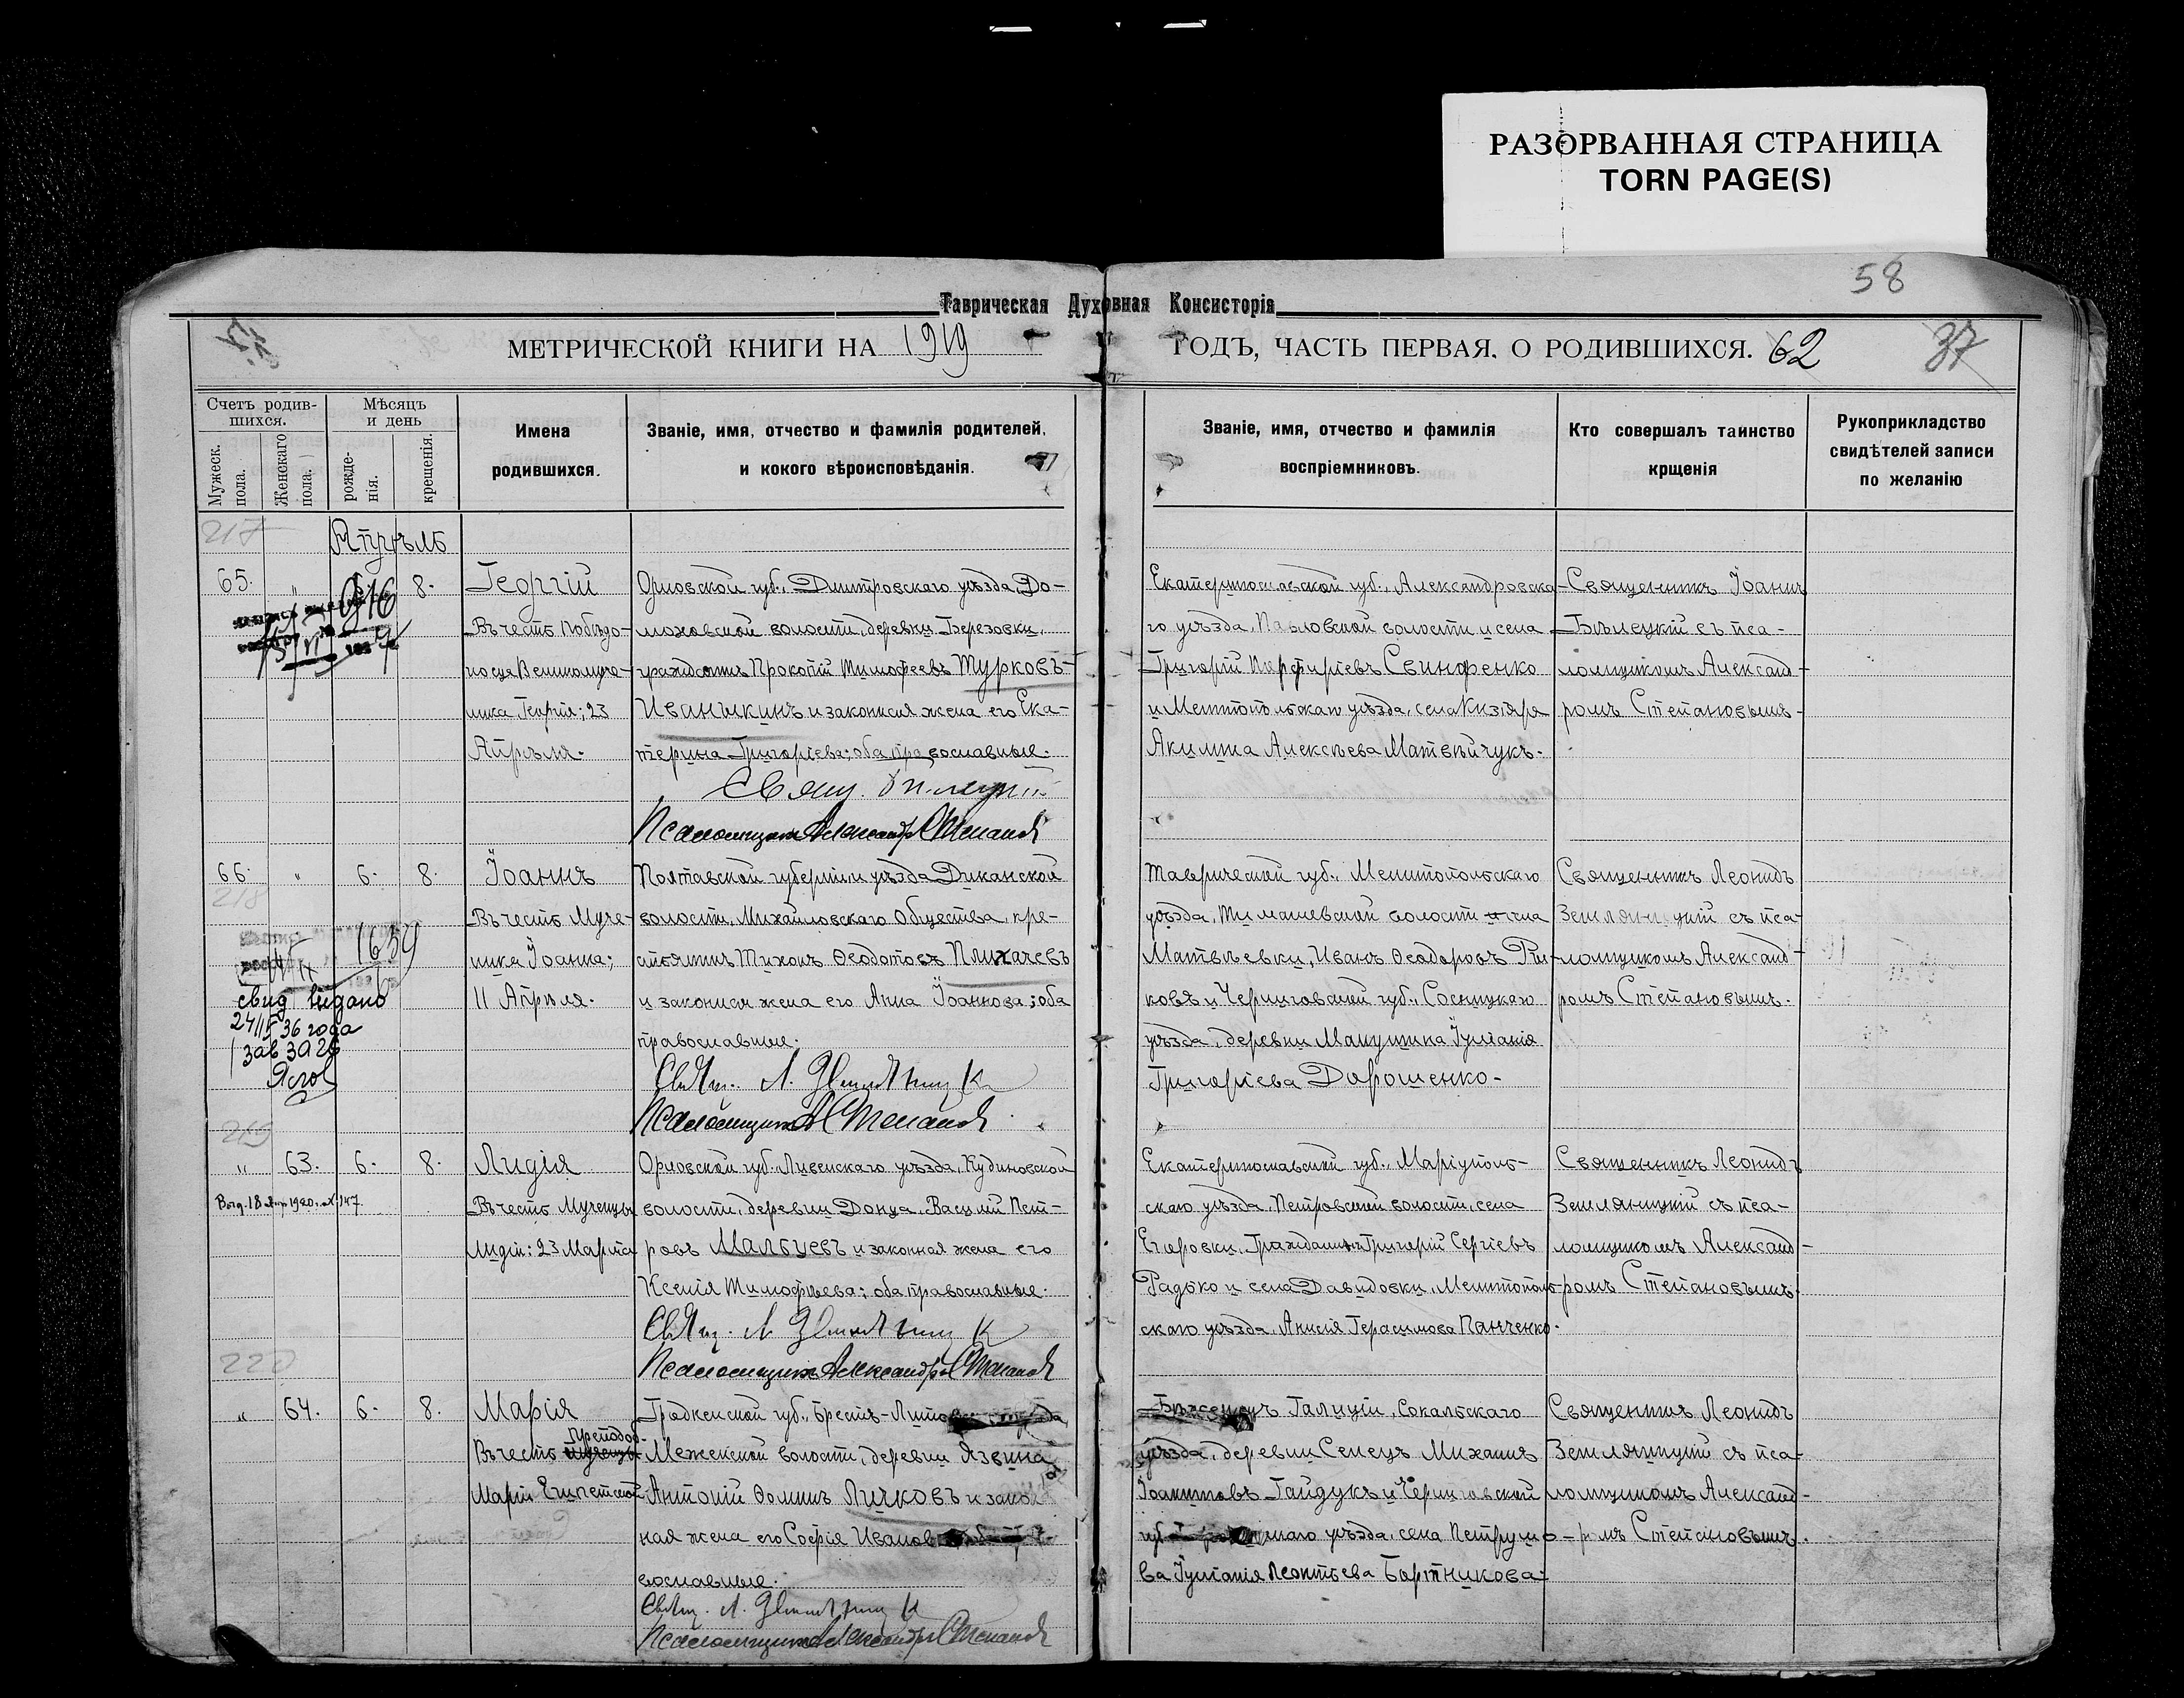 РАЗОРВАННАЯ СТРАНИЦА
TORN PAGE(S)
58
Таврическая Духовная Консисторія
МЕТРИЧЕСКОЙ КНИГИ НА 1919
ГОДЪ, ЧАСТЬ ПЕРВАЯ. О РОДИВШИХСЯ. 62
37
Счетъ родив-
шихся.
Мужеск.
пола.
Женскаго
пола.
Мѣсяцъ
и день
рожде-
нія.
крещенія.
Имена
родившихся.
Званіе, имя, отчество и фамилія родителей,
и кокого вѣроисповѣданія.
Званіе, имя, отчество и фамилія
воспріемниковъ.
Кто совершалъ таинство
крщенія
Рукоприкладство
свидѣтелей записи
по желанію
217
Апрѣль
65. " 8.
916
Георгій
Въ честь Побѣдо-
носца Великомуче-
ника Георгія; 23
Апрѣля.
Орловской губ., Дмитровскаго уѣзда, До-
моховской волости, деревни Березовки,
гражданинъ Прокопій Тимофеевъ Турковъ-
Иванькинъ и законная жена его Ека-
терина Григоріева; оба православные.
Свящ.
Псаломщикъ Александръ Степановъ
Екатеринославской губ., Александровска-
го уѣзда, Павловской волости и села
Григорій Порфиріевъ Свинаренко
и Мелитопольскаго уѣзда, села Кизіяра
Акилина Алексѣева Матвѣйчукъ.
Священникъ Іоаннъ
Бѣлецкій съ пса-
ломщикомъ Александ-
ромъ Степановымъ.
66. " 6. 8.
218
1659
свид выдано
24/II 36 года
Зав ЗАГС
Іоаннъ
Въ честь Муче-
ника Іоанна;
11 Апрѣля.
Полтавской губерніи и уѣзда Диканской
волости, Михайловскаго Общества, кре-
стьянинъ Тихонъ Ѳеодотовъ Плихачевъ
и законная жена его Анна Іоаннова; оба
православные.
Свящ. Л.
Псаломщикъ А. Степановъ
Таврической губ., Мелитопольскаго
уѣзда, Тимашевской волости и села
Матвѣевки, Иванъ Ѳеодоровъ Ры-
ковъ и Черниговской губ., Сосницкаго
уѣзда, деревни Макушина Іуліанія
Григоріева Дорошенко.
Священникъ Леонидъ
Земляницкій съ пса-
ломщикомъ Александ-
ромъ Степановымъ.
219
" 63. 6. 8.
Выд. 18 1920. № 147
Лидія
Въ честь Мученицы
Лидіи: 23 Марта
Орловской губ. Ливенскаго уѣзда, Кудиновской
волости, деревни Донца, Василій Пет-
ровъ Мальцевъ и законная жена его
Ксенія Тимофѣева; оба православные.
Свящ. Л.
Псаломщикъ Александръ Степановъ
Екатеринославской губ. Маріуполь-
скаго уѣзда, Петровской волости, села
Егоровки, Гражданинъ Григорій Сергіевъ
Радько и села Давидовки, Мелитополь-
скаго уѣзда, Анисія Герасимова Панченко.
Священникъ Леонидъ
Земляницкій съ пса-
ломщикомъ Александ-
ромъ Степановымъ.
220
" 64. 6. 8.
Марія
Въ честь преподоб.
Маріи Египетской
Гродненской губ., Брестъ-
волости, деревни Язвина
Антоній Ѳоминъ Личковъ и закон
ная жена его Софія Иванов
вославные.
Свящ. Л.
Псаломщикъ Александръ Степановъ
Бѣженецъ Галиціи, Сокальскаго
уѣзда, деревни Селецъ Михаилъ
Іоанновъ Гайдукъ и Черниговской
губ уѣзда, села Петруши-
ва Іуліанія Леонтьева Бортникова.
Священникъ Леонидъ
Земляницкій съ пса-
ломщикомъ Александ-
ромъ Степановымъ.